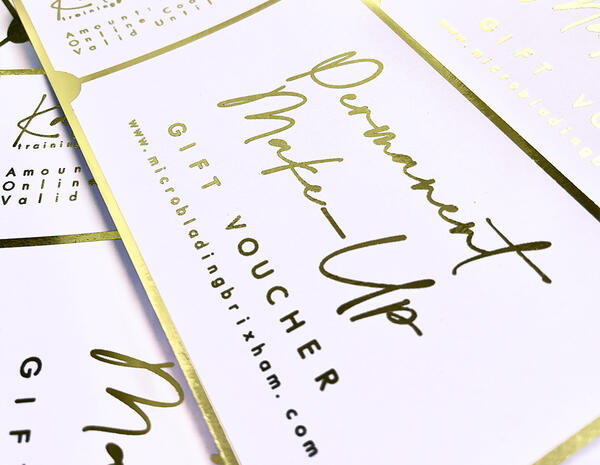 training
Amount:
Online
Valid Until
Permanent
Make-Up
GIFT VOUCHER
www.microbladingbrixham.com
GIFT
www.microbladingbrixham
training
Amoun
Online
Valid
GIF